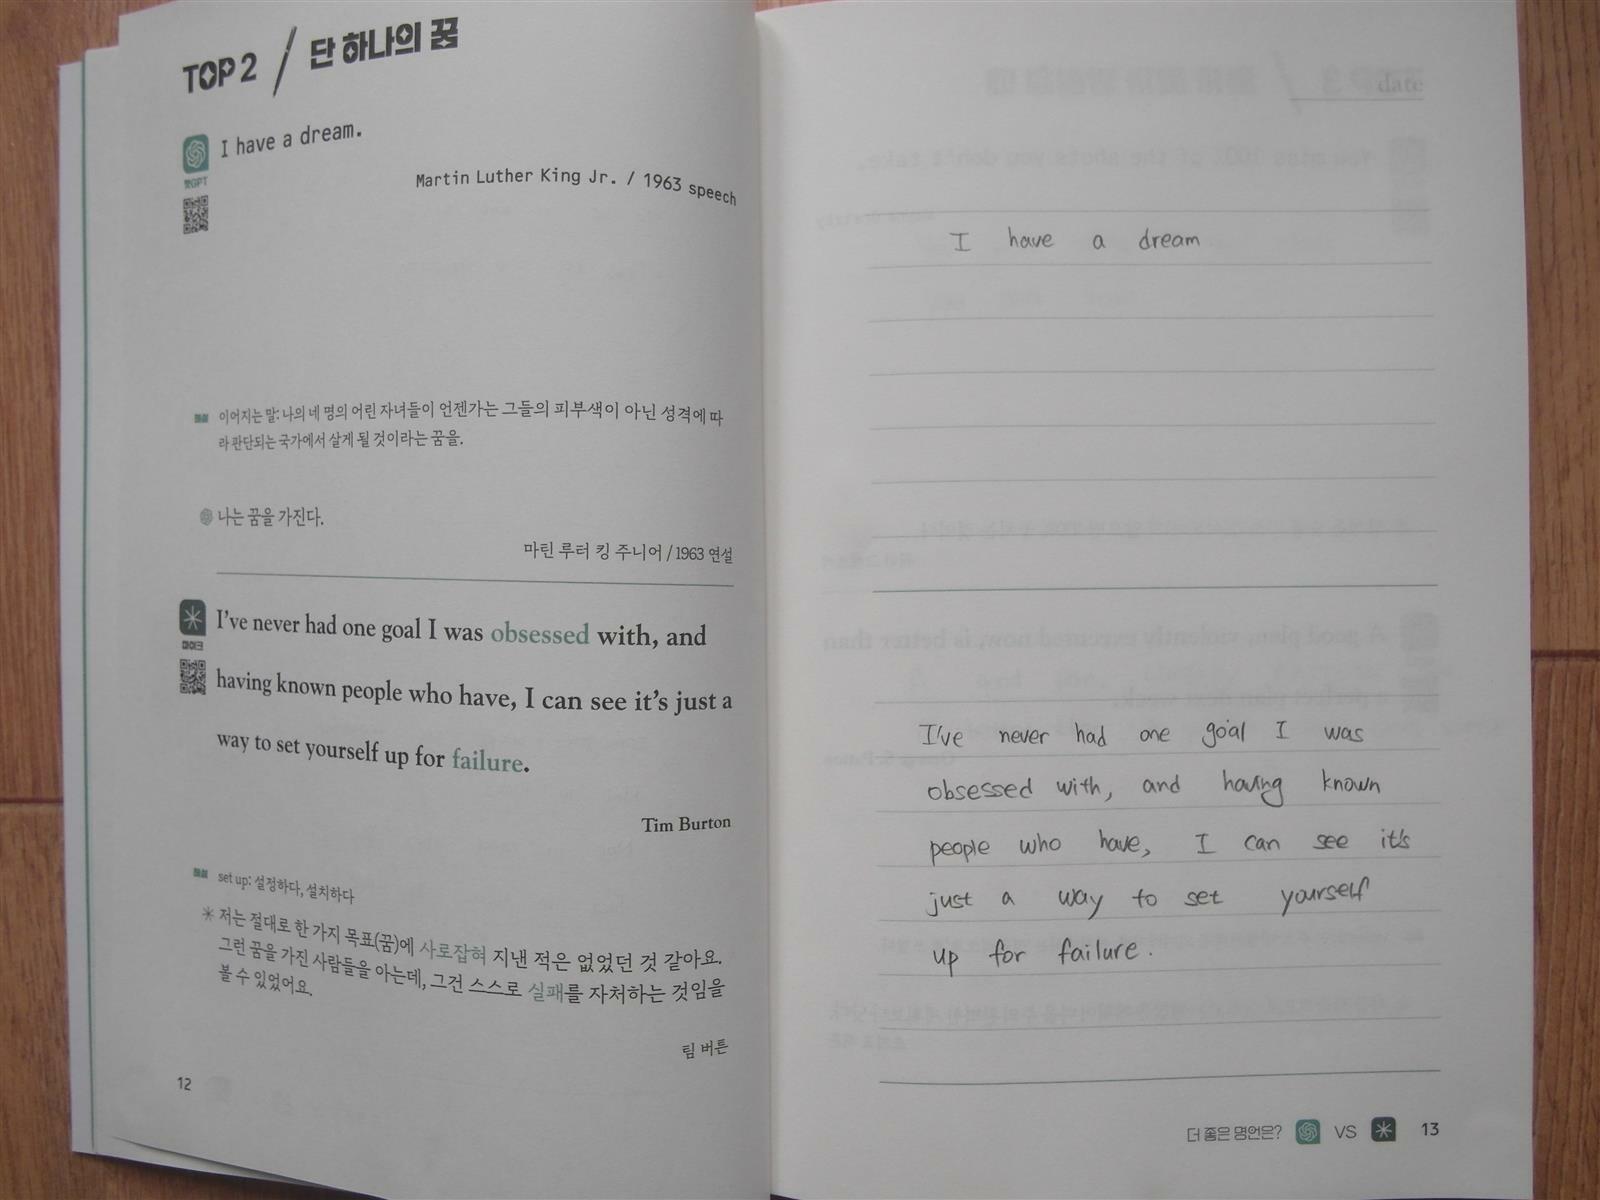 TOP 2 / 단 하나의 꿈
I have a dream.
챗GPT
Martin Luther King Jr. / 1963 speech
해설 이어지는 말: 나의 네 명의 어린 자녀들이 언젠가는 그들의 피부색이 아닌 성격에 따
라 판단되는 국가에서 살게 될 것이라는 꿈을.
나는 꿈을 가진다.
마틴 루터 킹 주니어 / 1963 연설
I've never had one goal I was obsessed with, and
마이크
having known people who have, I can see it's just a
way to set yourself up for failure.
Tim Burton
해설 set up: 설정하다, 설치하다
저는 절대로 한 가지 목표(꿈)에 사로잡혀 지낸 적은 없었던 것 같아요.
그런 꿈을 가진 사람들을 아는데, 그건 스스로 실패를 자처하는 것임을
볼 수 있었어요.
팀 버튼
12
date
I have a dream
I've never had one goal I was
obsessed with, and having known
people who have, I can see it's
just a way to set yourself
up for failure.
더 좋은 명언은? VS 13